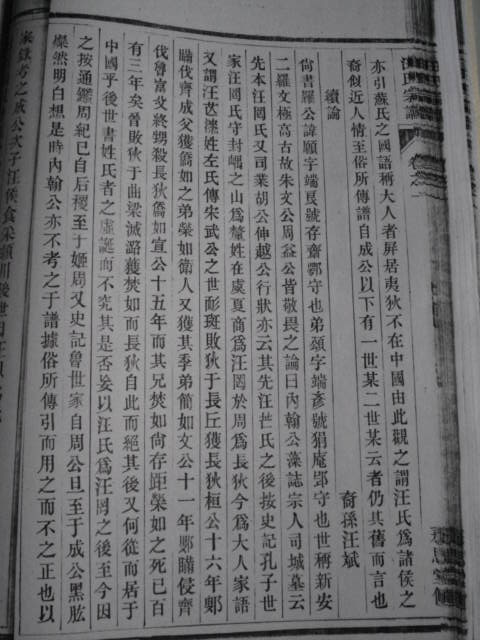 汪氏宗譜 卷之
亦引蘇氏之國語稱大人者屏居夷狄不在中國由此觀之謂汪氏爲諸侯之
裔似近人情至俗所傳譜自成公以下有一世某二世某云者仍其舊而言也
裔孫汪斌
續論
尙書羅公諱願字端良號存齋鄂守也弟頌字端彥號狷庵郢守也世稱新安
二羅文極高古故朱文公周益公皆敬畏之論曰內翰公藻誌宗人司城墓云
先本汪罔氏又司業胡公伸越公行狀亦云其先汪芒氏之後按史記孔子世
家汪罔氏守封嵎之山爲釐姓在虞夏商爲汪罔於周爲長狄今爲大人家語
又謂汪芒漆姓左氏傳宋武公之世耏斑敗狄于長丘獲長狄桓公十六年鄋
瞞伐齊成父獲僑如之弟榮如衛人又獲其季弟簡如文公十一年鄋瞞侵齊
伐魯富父終甥殺長狄僑如宣公十五年而其兄焚如尙存距榮如之死已百
有三年矣晉敗狄于曲梁滅潞獲焚如而長狄自此而絕其後又何從而居于
中國乎後世書姓氏者之虛誕而不究其是否妄以汪氏爲汪罔之後至今因
之按通鑑周紀已自后稷至于姬周又史記魯世家自周公旦至于成公黑肱
燦然明白想是時內翰公亦不考之于譜據俗所傳引而用之而不之正也以
家獄考之成公次子汪侯食采潁川後世因